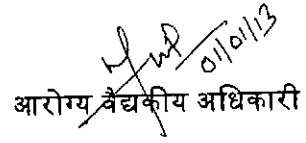 01/01/13
आरोग्य वैद्यकीय अधिकारी